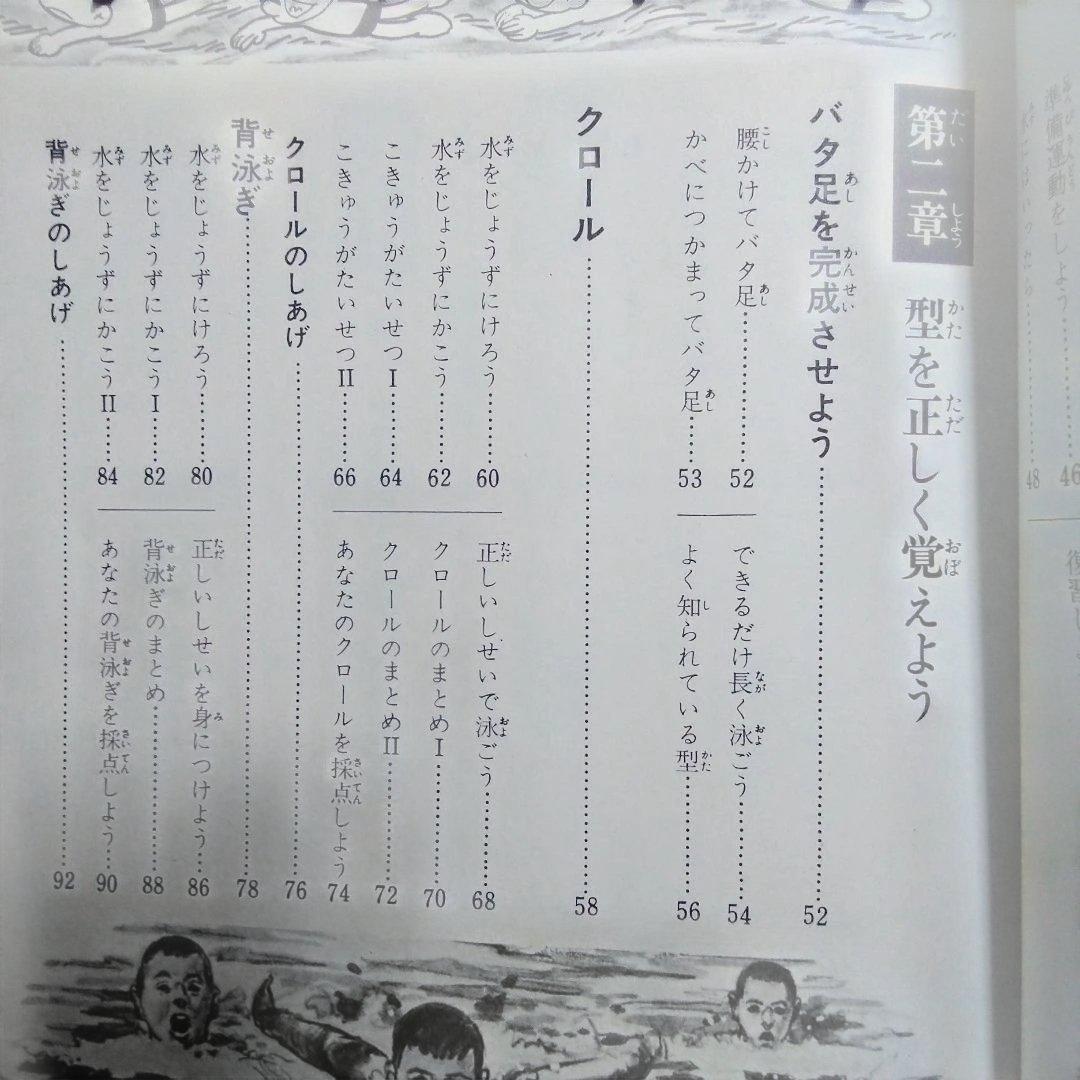 準備運動をしよう……46
48
第二章 型を正しく覚えよう
バタ足を完成させよう……52
腰かけてバタ足……52
かべにつかまってバタ足……53
できるだけ長く泳ごう……54
よく知られている型……56
クロール……58
水をじょうずにけろう……60
水をじょうずにかこう……62
こきゅうがたいせつⅠ……64
こきゅうがたいせつⅡ……66
正しいしせいで泳ごう……68
クロールのまとめⅠ……70
クロールのまとめⅡ……72
あなたのクロールを採点しよう 74
クロールのしあげ……76
背泳ぎ……78
水をじょうずにけろう……80
水をじょうずにかこうⅠ……82
水をじょうずにかこうⅡ……84
正しいしせいを身につけよう……86
背泳ぎのまとめ……88
あなたの背泳ぎを採点しよう……90
背泳ぎのしあげ……92